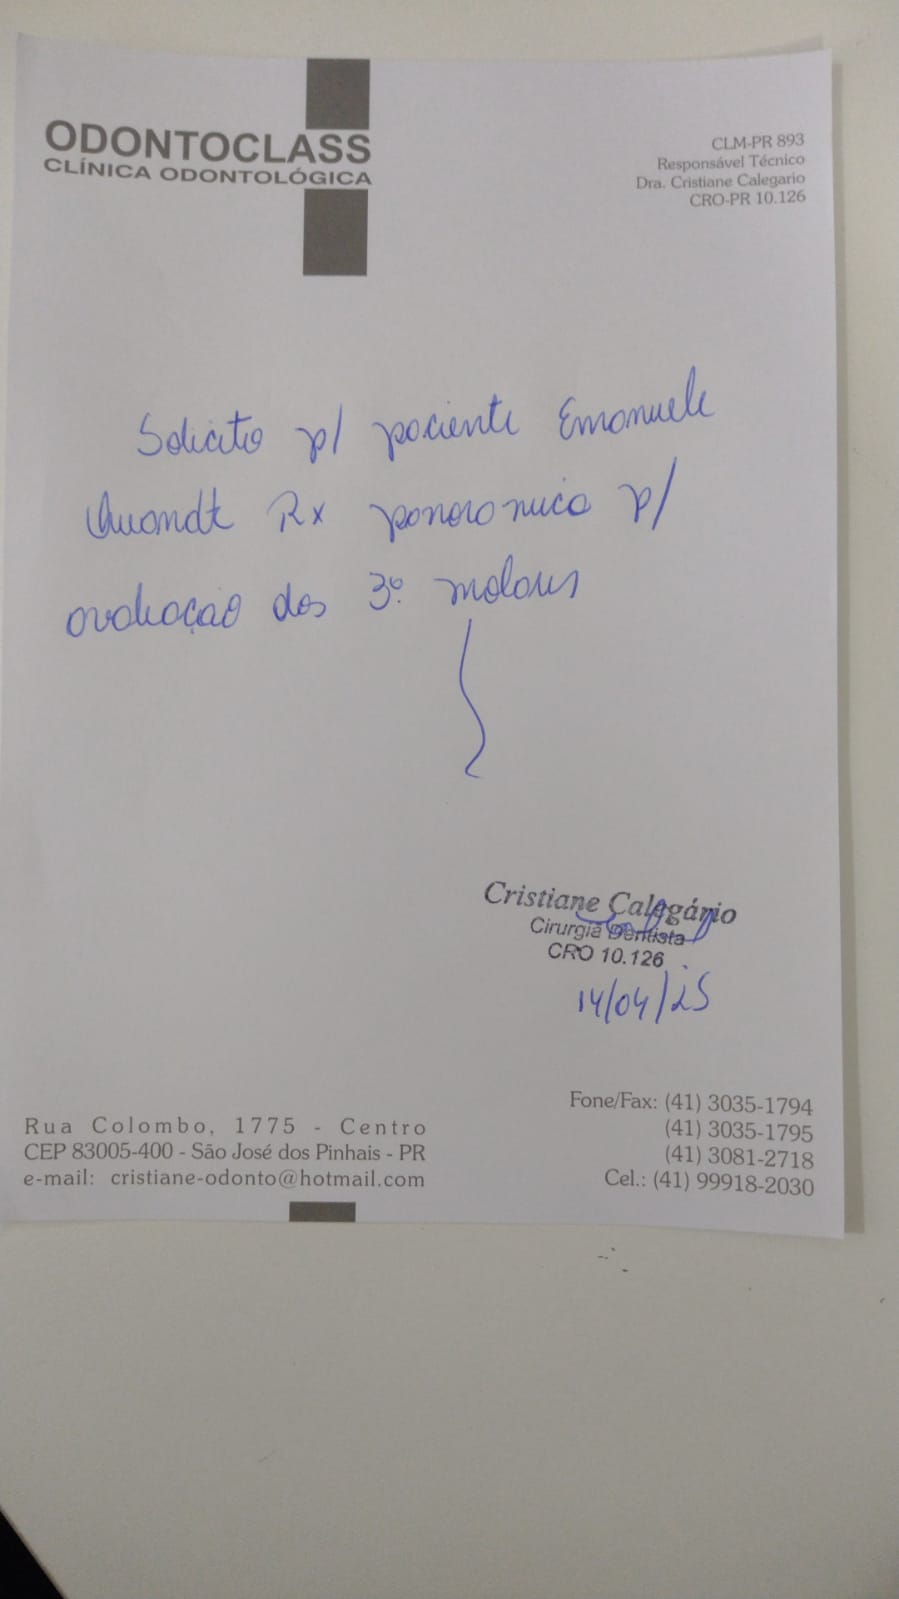 ODONTOCLASS
CLÍNICA ODONTOLÓGICA
CLM-PR 893
Responsável Técnico
Dra. Cristiane Calegario
CRO-PR 10.126
Solicito p/ paciente Emanuele
Quandt Rx panoramica p/
avaliação dos 3º. molares
Cristiane Calegário
Cirurgiã Dentista
CRO 10.126
14/04/25
Rua Colombo, 1775 - Centro
CEP 83005-400 - São José dos Pinhais - PR
e-mail: cristiane-odonto@hotmail.com
Fone/Fax: (41) 3035-1794
(41) 3035-1795
(41) 3081-2718
Cel.: (41) 99918-2030